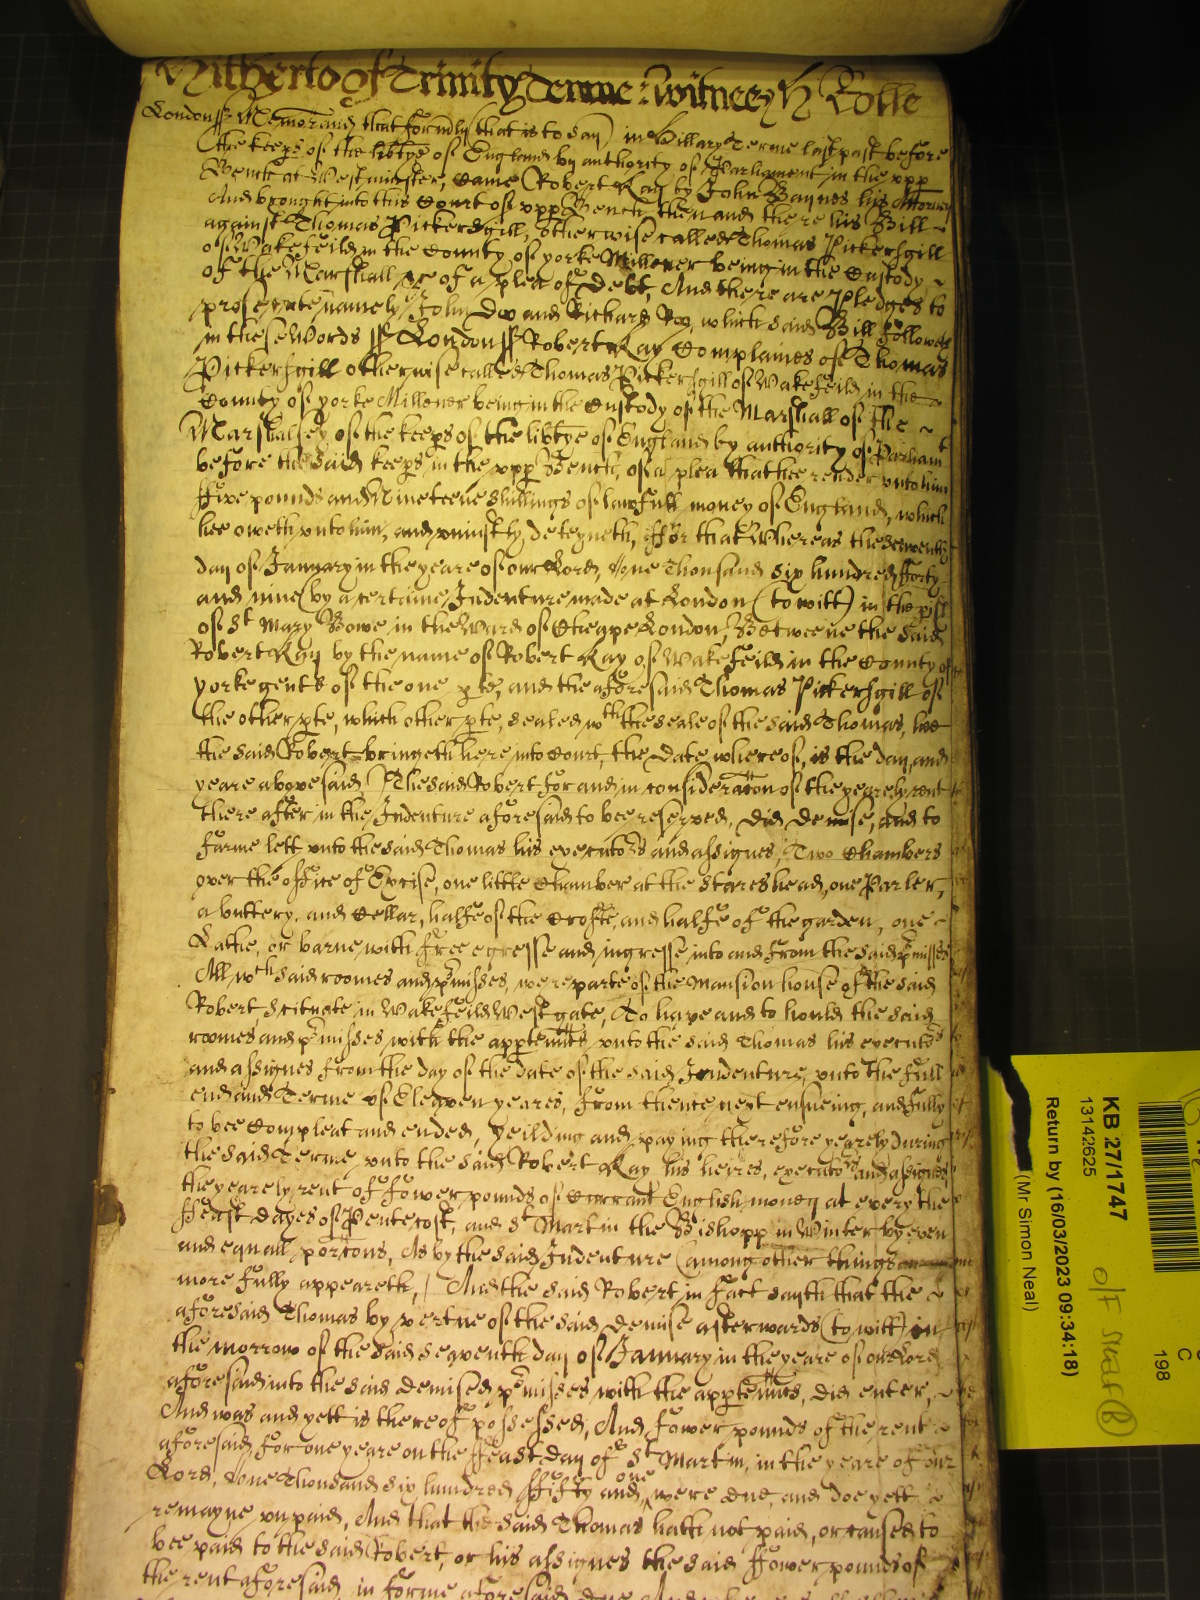 Hitherto of Trinity Terme : witnes H Rolle
London ss Memorand that formly (that is to say) in Hillary Terme last past before
the keeps of the libtye of England by authority of Parliament in the vpp
Bench at Westminster, Came Robert Kay by John Baynes his Attorney
And brought into this Court of vpp Bench then and there his Bill
against Thomas Pickersgill, otherwise called Thomas Pickersgill
of Wakefeild in the County of yorke Millener being in the Custody
of the Marshall &c of a plea of Debt, And there are Pledges to
prosecute namely John Doo and Richard Roo, which said Bill followes
in these Words ss London ss Robert Kay Complaines of Thomas
Pickersgill otherwise called Thomas Pickersgill of Wakefeild in the
County of yorke Millener being in the Custody of the Marshall of the
Marshalsey of the keeps of the libtye of England by authority of Parliamt
before the said keeps in the vpp Bench, of a plea that hee render vnto him
ffive pounds and Nineteene shillings of lawfull money of England, which
hee oweth vnto him, and vniustly deteyneth, ffor that Whereas the seaventh
day of January in the yeare of our Lord, One Thousand six hundred fforty
and nine by a certaine Indenture made at London (to witt) in the pish
of St Mary Bowe in the Ward of Cheape London, Betweene the said
Robert Kay by the name of Robert Kay of Wakefeild in the County of
yorke gent of the one pte, and the aforesaid Thomas Pickersgill of
the other pte, which other pte, sealed wth the seale of the said Thomas, hee
the said Robert bringeth here into Court, the Date whereof, is the day and
yeare abovesaid The said Robert for and in consideracon of the yearely rent
there after in the Indenture aforesaid to bee reserved, did demise, and to
farme lett vnto the said Thomas his executors and assignes, Two Chambers
over the office of Excise, one little Chamber at the staires head, one Parler,
a buttery, and Cellar, halfe of the Crofte, and halfe of the garden, one
Lathe, or barne with free egresse and ingresse into and from the said pmisses
All wch said roomes and pmisses, were parte of the mansion house of the said
Robert scituate in Wakefeild Westgate, To have and to hould the said
roomes and pmisses with the apptennts vnto the said Thomas his executors
and assignes from the day of the date of the said Indenture, vnto the full
end and Terme of Eleaven yeares, from thence next ensueing, and fully
to bee Compleat and ended, yeilding and paying therefore yearely during
the said Terme, vnto the said Robert Kay his heires, executors and assignes,
the yearely rent of fower pounds of Currant English money at every the
ffeast dayes of Pentecost, and St Martin the Bishopp in Winter by even
and equall porcons, As by the said Indenture (among other things
more fully appeareth, And the said Robert in fact sayth that the
aforesaid Thomas by vertue of the said demise afterwards (to witt) in
the morrow of the said seaventh day of January in the yeare of our Lord
aforesaid into the said demised pmisses with the apptennts, did enter,
And was and yett is thereof possessed, And fower pounds of the rent
aforesaid for one yeare on the ffeast day of St Martin, in the yeare of our
Lord, One Thousand six hundred ffifty and one were due and doe yett
remayne vnpaid, And that the said Thomas hath not paid, or caused to
bee paid to the said Robert, or his assignes the said ffower pounds of
the rent aforesaid in forme aforesaid
KB 27/1747
13142625
Return by (16/03/2023 09:34:18)
(Mr Simon Neal)
C
198